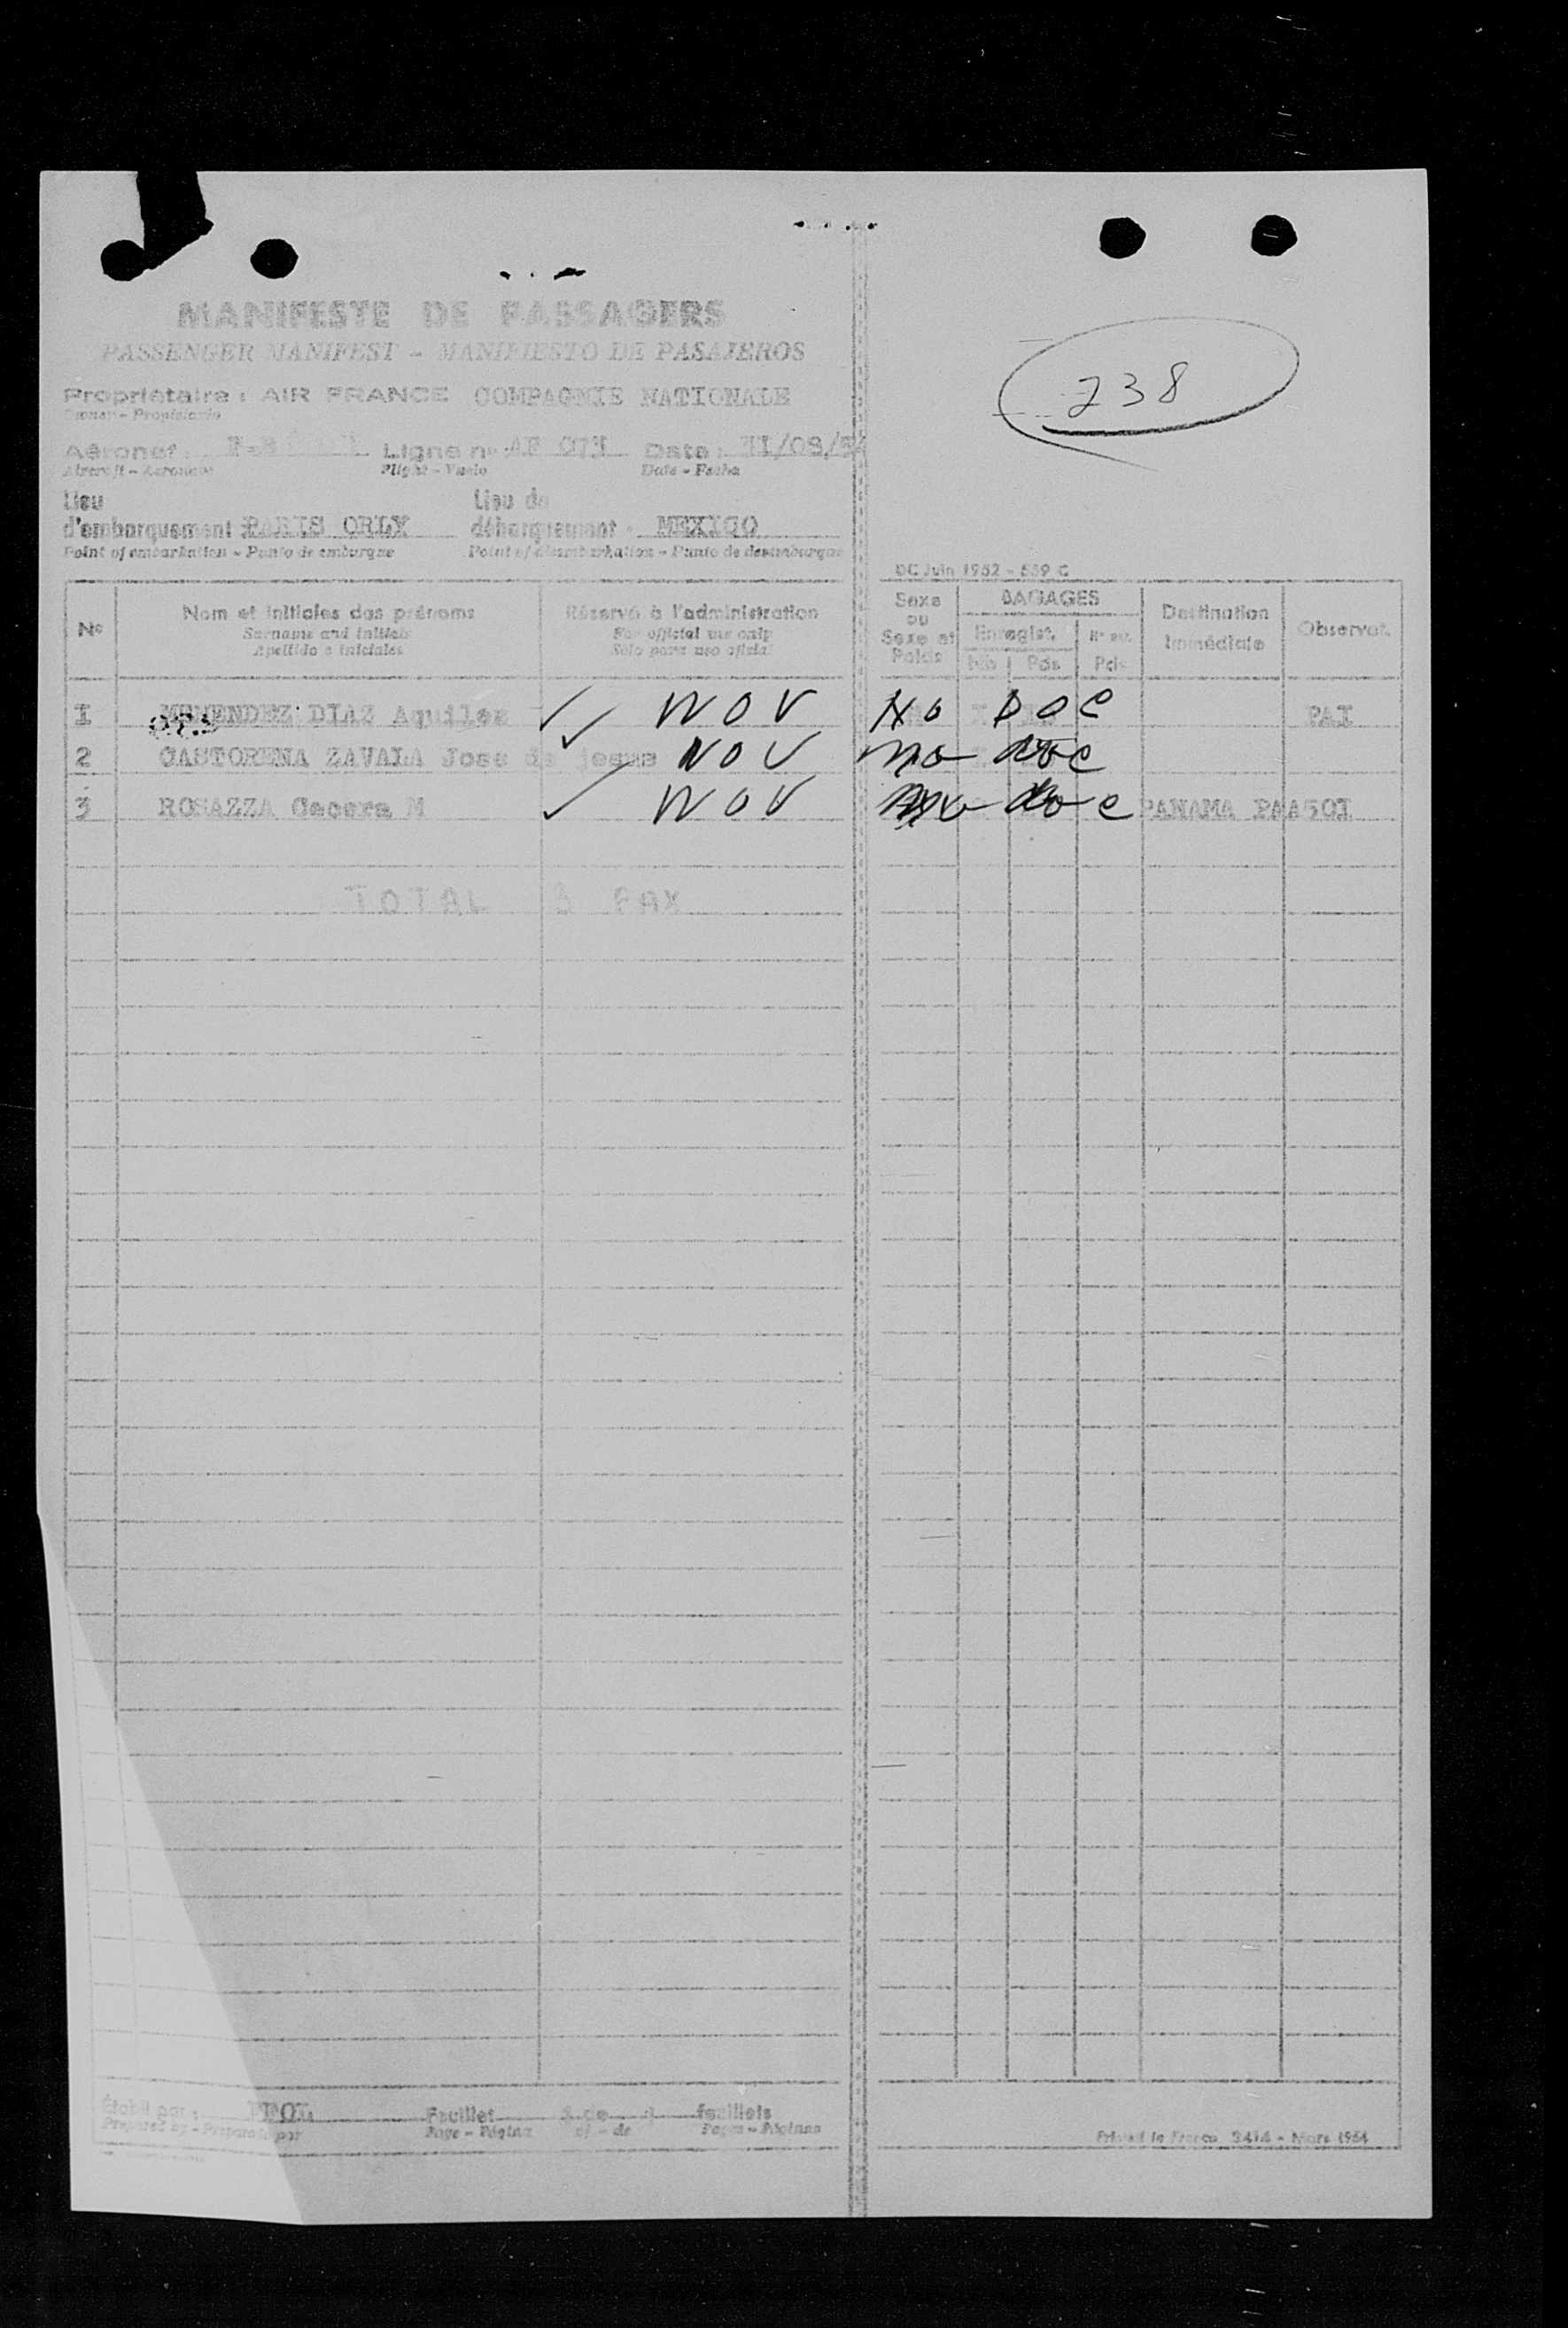 MANIFESTE DE PASSAGERS
PASSENGER MANIFEST - MANIFIESTO DE PASAJEROS
738
Propriétaire : AIR FRANCE COMPAGNIE NATIONALE
Owner - Propietario
Aéronef : Ligne n° AF 071 Date : 11/08/54
Aircraft - Aeronave Flight - Vuelo Date - Fecha
Lieu d'embarquement : PARIS ORLY Lieu de débarquement : MEXICO
Point of embarkation - Punto de embarque Point of disembarkation - Punto de desembarque
DC Juin 1952 - 559 C
N° Nom et initiales des prénoms Réservé à l'administration Sexe ou Sexe et Poids BAGAGES Destination Immédiate Observat.
Surname and initials For official use only Enregist.
Apellido e iniciales Sólo para uso oficial Nb Pds Pds
1 MENENDEZ DIAZ Aquiles NOV NO DOC PAI
2 CASTORENA ZAVALA Jose de jesus NOV no doc
3 ROSAZZA Gecera M NOV doc PANAMA PAA501
TOTAL 3 PAX
Établi par :
Prepared by - Preparado por
Feuillet de feuillets
Page - Página of - de Pages - Páginas
Printed in France 3414 - Mars 1954